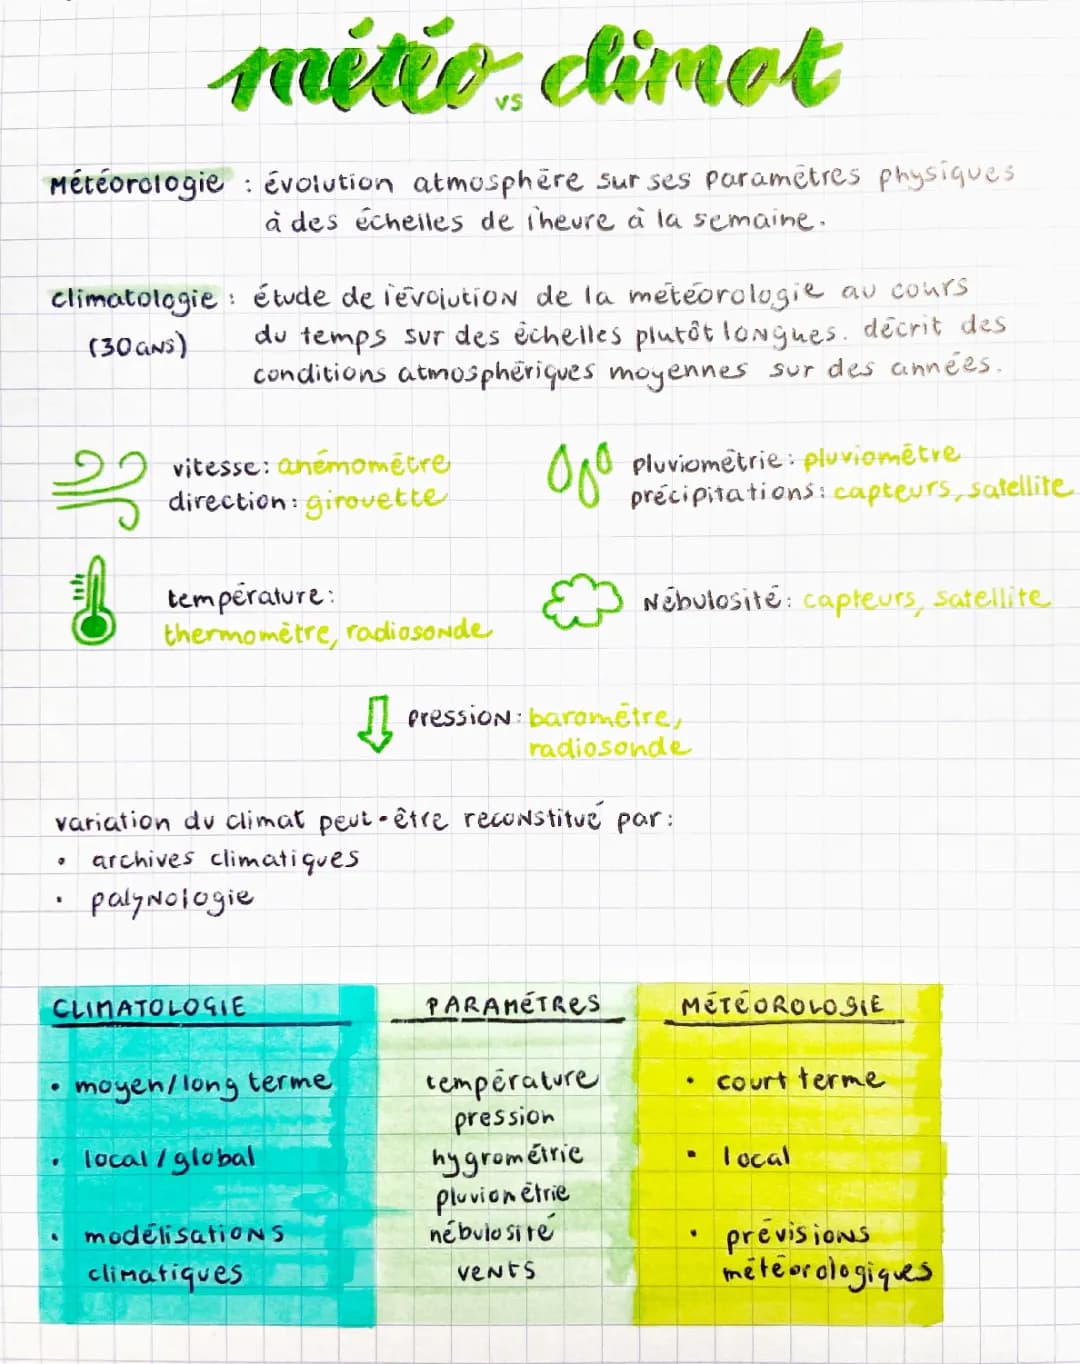 météo vs climat
Météorologie : évolution atmosphère sur ses paramètres physiques
à des échelles de l'heure à la semaine.
climatologie : étude de l'évolution de la météorologie au cours
(30 ans) du temps sur des échelles plutôt longues. décrit des
conditions atmosphériques moyennes sur des années.
vitesse: anémomètre
direction: girouette
pluviométrie: pluviomètre
précipitations: capteurs, satellite
température:
thermomètre, radiosonde
Nébulosité: capteurs, satellite
pression: baromètre,
radiosonde
variation du climat peut-être reconstitué par:
• archives climatiques
• palynologie
CLIMATOLOGIE
• moyen/long terme
• local/global
• modélisations
climatiques
PARAMÉTRES
température
pression
hygrométrie
pluviométrie
nébulosité
vents
MÉTÉOROLOGIE
• court terme
• local
• prévisions
météorologiques